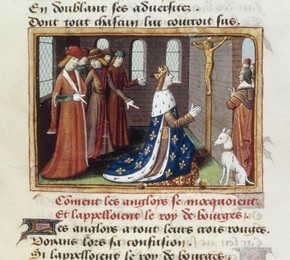 En doublant ses adversitez
Dont tout chascun luy couroit sus.
Coment les anglois se mocquoient
Et lappelloient le roy de bourges.
Les anglois a tout leurs croix rouges.
Voyans lors sa confusion.
Si lappelloient le roy de bourges.